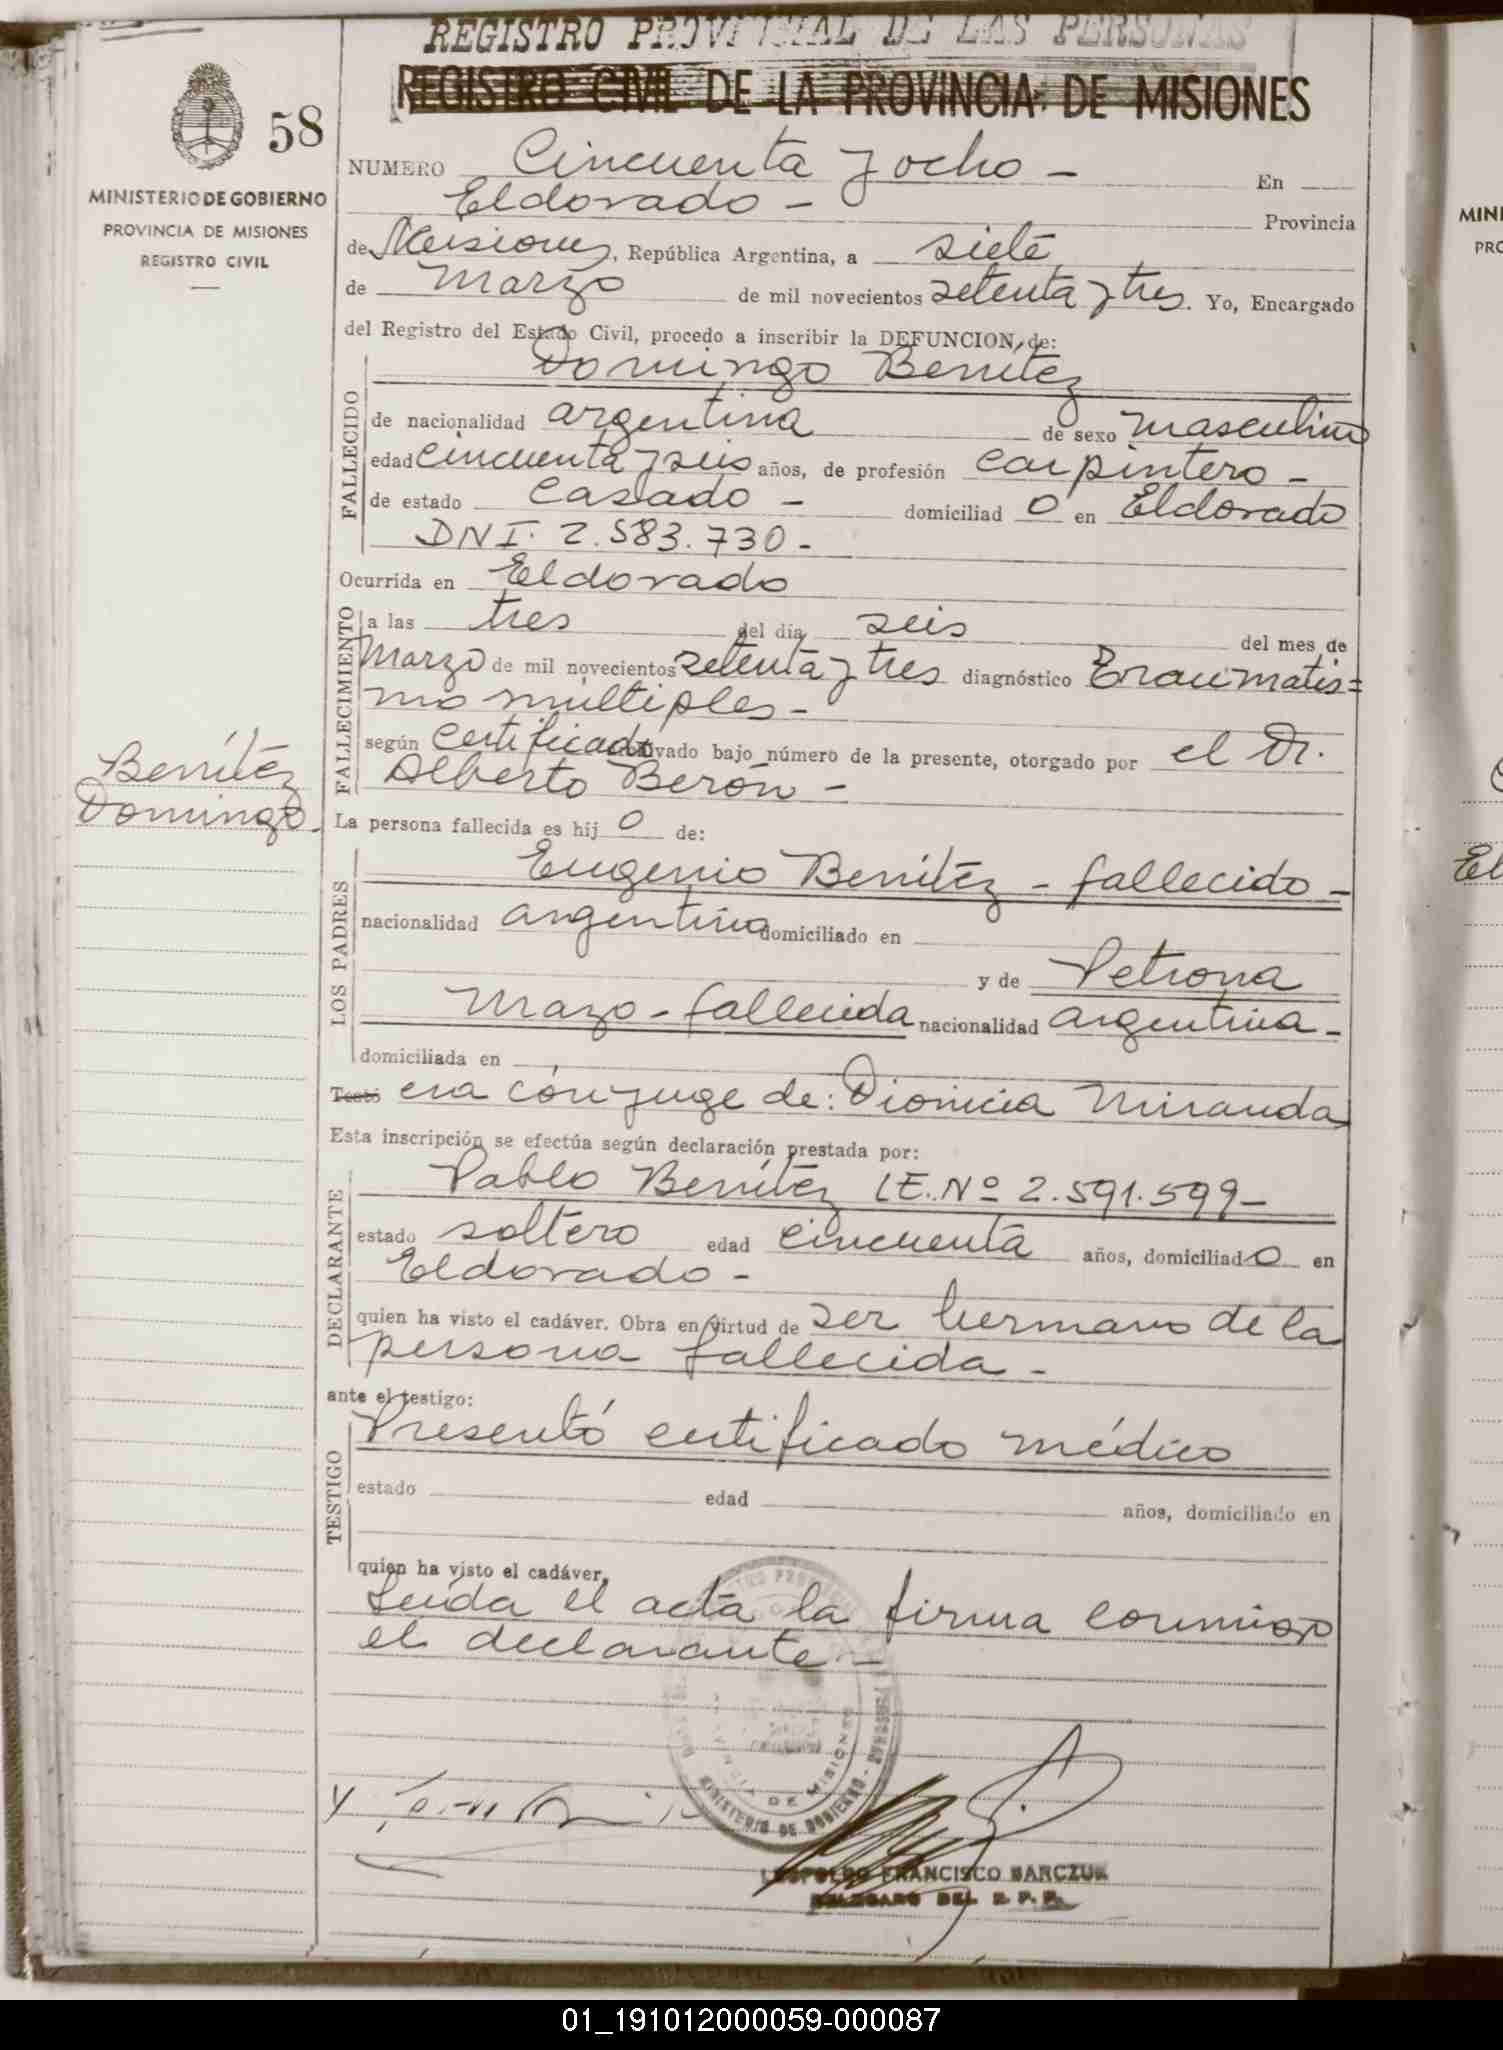 REGISTRO PROVINCIAL DE LAS PERSONAS
REGISTRO CIVIL DE LA PROVINCIA DE MISIONES
58
MINISTERIO DE GOBIERNO
PROVINCIA DE MISIONES
REGISTRO CIVIL
NUMERO Cincuenta y ocho - En
Eldorado - Provincia
de Misiones, República Argentina, a siete
de Marzo de mil novecientos setenta y tres. Yo, Encargado
del Registro del Estado Civil, procedo a inscribir la DEFUNCION de:
FALLECIDO
Domingo Benítez
de nacionalidad argentina de sexo masculino
edad cincuenta y seis años, de profesión carpintero -
de estado casado - domiciliad o en Eldorado
DNI. 2.583.730 -
Ocurrida en Eldorado
FALLECIMIENTO
a las tres del día seis del mes de
Marzo de mil novecientos setenta y tres diagnóstico Traumatis=
mo múltiples -
según certificado archivado bajo número de la presente, otorgado por el Dr.
Alberto Berón -
Benítez
Domingo.
La persona fallecida es hij o de:
LOS PADRES
Eugenio Benítez - fallecido -
nacionalidad argentina domiciliado en
y de Petrona
Mazo - fallecida nacionalidad argentina -
domiciliada en
Testó era cónyuge de: Dionicia Miranda
Esta inscripción se efectúa según declaración prestada por:
DECLARANTE
Pablo Benítez LE. Nº 2.591.599 -
estado soltero edad cincuenta años, domiciliado en
Eldorado -
quien ha visto el cadáver. Obra en virtud de ser hermano de la
persona fallecida -
ante el testigo:
TESTIGO
Presentó certificado médico
estado edad años, domiciliado en
quien ha visto el cadáver.
Leída el acta la firma conmigo
el declarante -
MINISTERIO DE GOBIERNO
PROVINCIA DE MISIONES
LEOPOLDO FRANCISCO BARCZUK
DELEGADO DEL R. P. P.
MINI
PRO
El
01_191012000059-000087